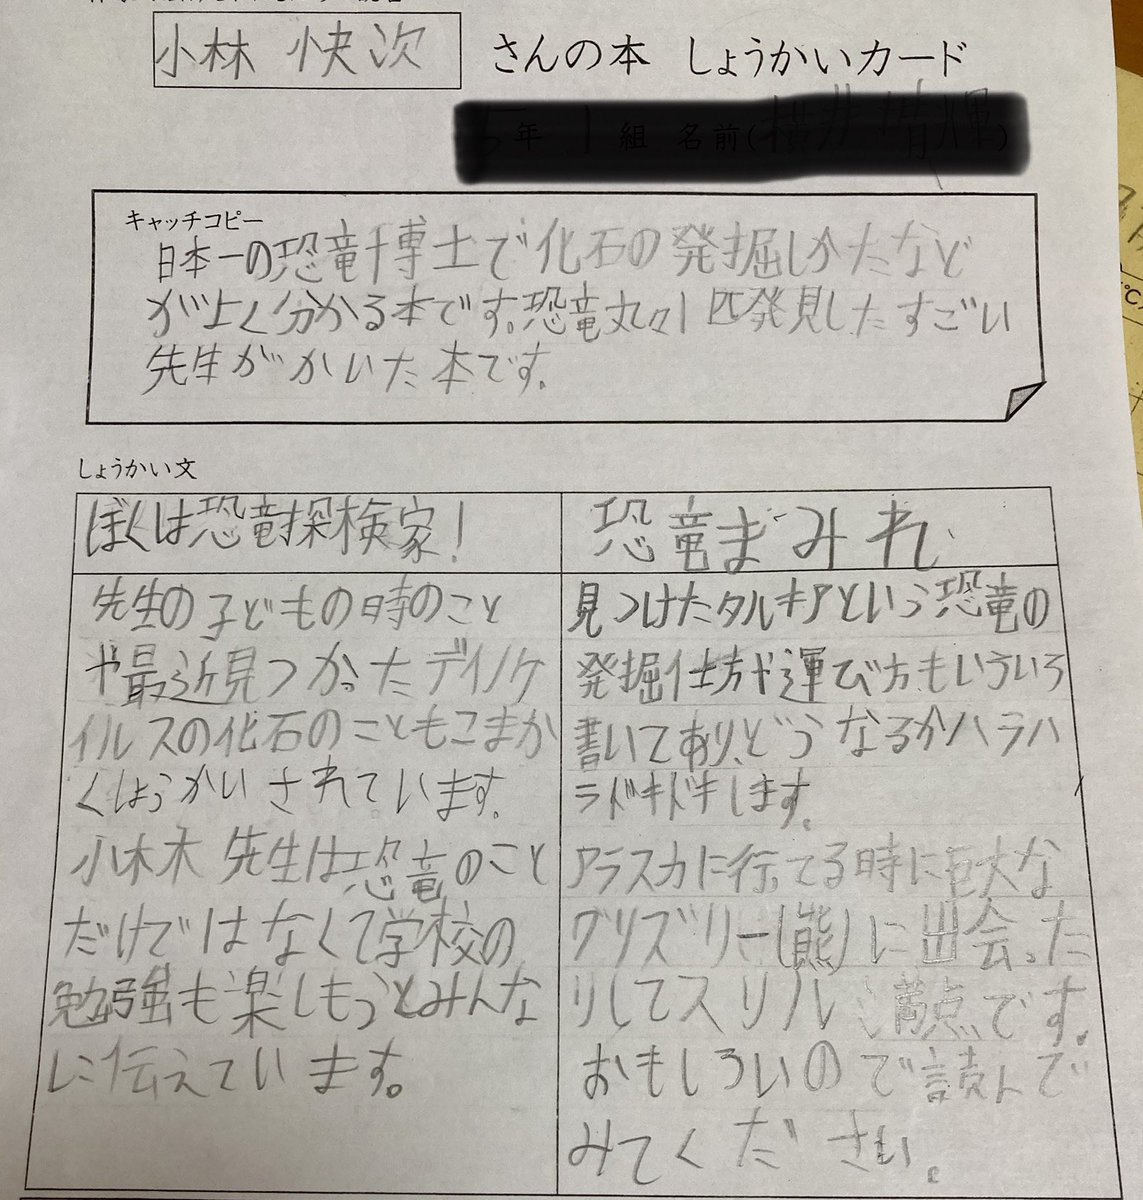 小林 快次 さんの本 しょうかいカード
年 組 名前( )
キャッチコピー
日本一の恐竜博士で化石の発掘しかたなど
がよく分かる本です。恐竜丸々1匹発見したすごい
先生がかいた本です。
しょうかい文
ぼくは恐竜探検家!
先生の子どもの時のこと
や最近見つかったデイノケ
イルスの化石のこともこまか
くしょうかいされています。
小林 先生は恐竜のこと
だけではなくて学校の
勉強も楽しもうとみんな
に伝えています。
恐竜まみれ
見つけたタルキアという恐竜の
発掘仕方や運び方もいろいろ
書いてあり、どうなるかハラハ
ラドキドキします。
アラスカに行ってる時に巨大な
グリズリー(熊)に出会った
りしてスリル満点です。
おもしろいので読んで
みてください。